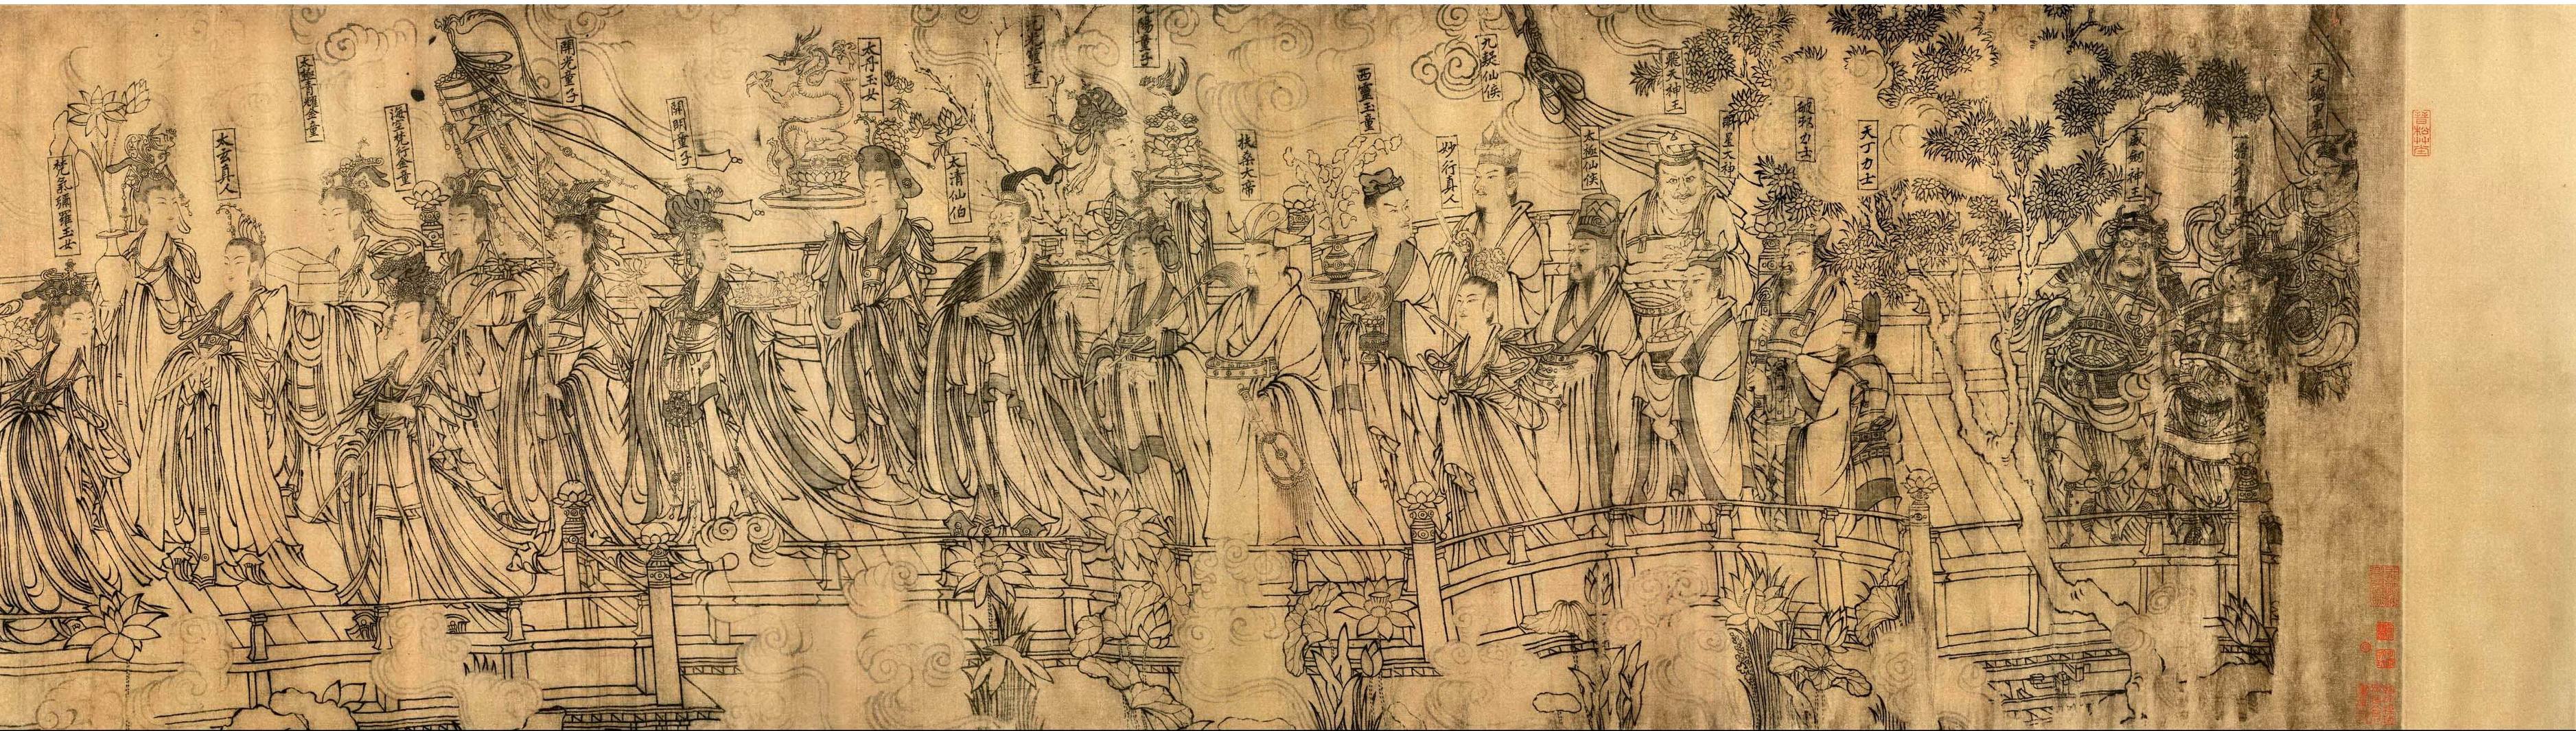 威劍神王
天丁力士
破邪力士
明星大神
飛天神王
太極仙侯
九疑仙侯
妙行真人
西靈玉童
扶桑大帝
元陽童子
太清仙伯
太丹玉女
開明童子
開光童子
海空梵行金童
太極青耀金童
太玄真人
梵氣彌羅玉女